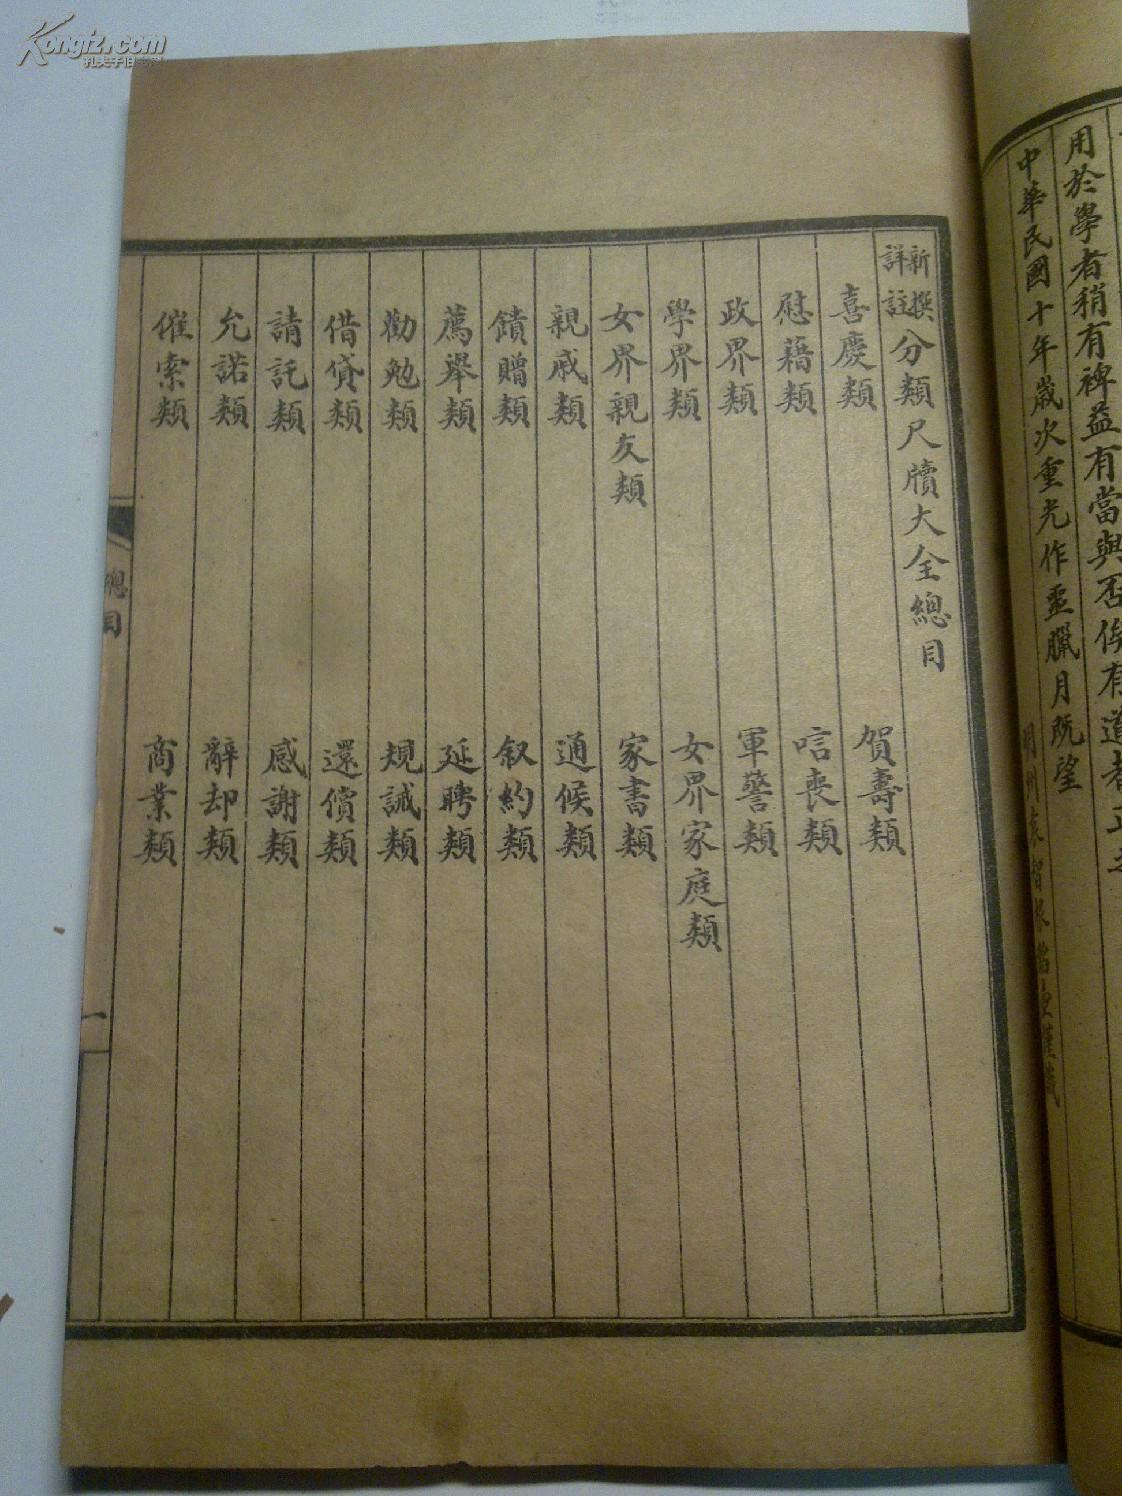 用於學者稍有裨益有當與否俟有道者正之
中華民國十年歲次重光作噩臘月既望
新撰詳註分類尺牘大全總目
喜慶類 賀壽類
慰藉類 唁喪類
政界類 軍警類
學界類 女界家庭類
女界親友類 家書類
親戚類 通候類
饋贈類 叙約類
薦舉類 延聘類
勸勉類 規誡類
借貸類 還償類
請託類 感謝類
允諾類 辭却類
催索類 商業類
總目
一
Kongfz.com
孔夫子旧书网